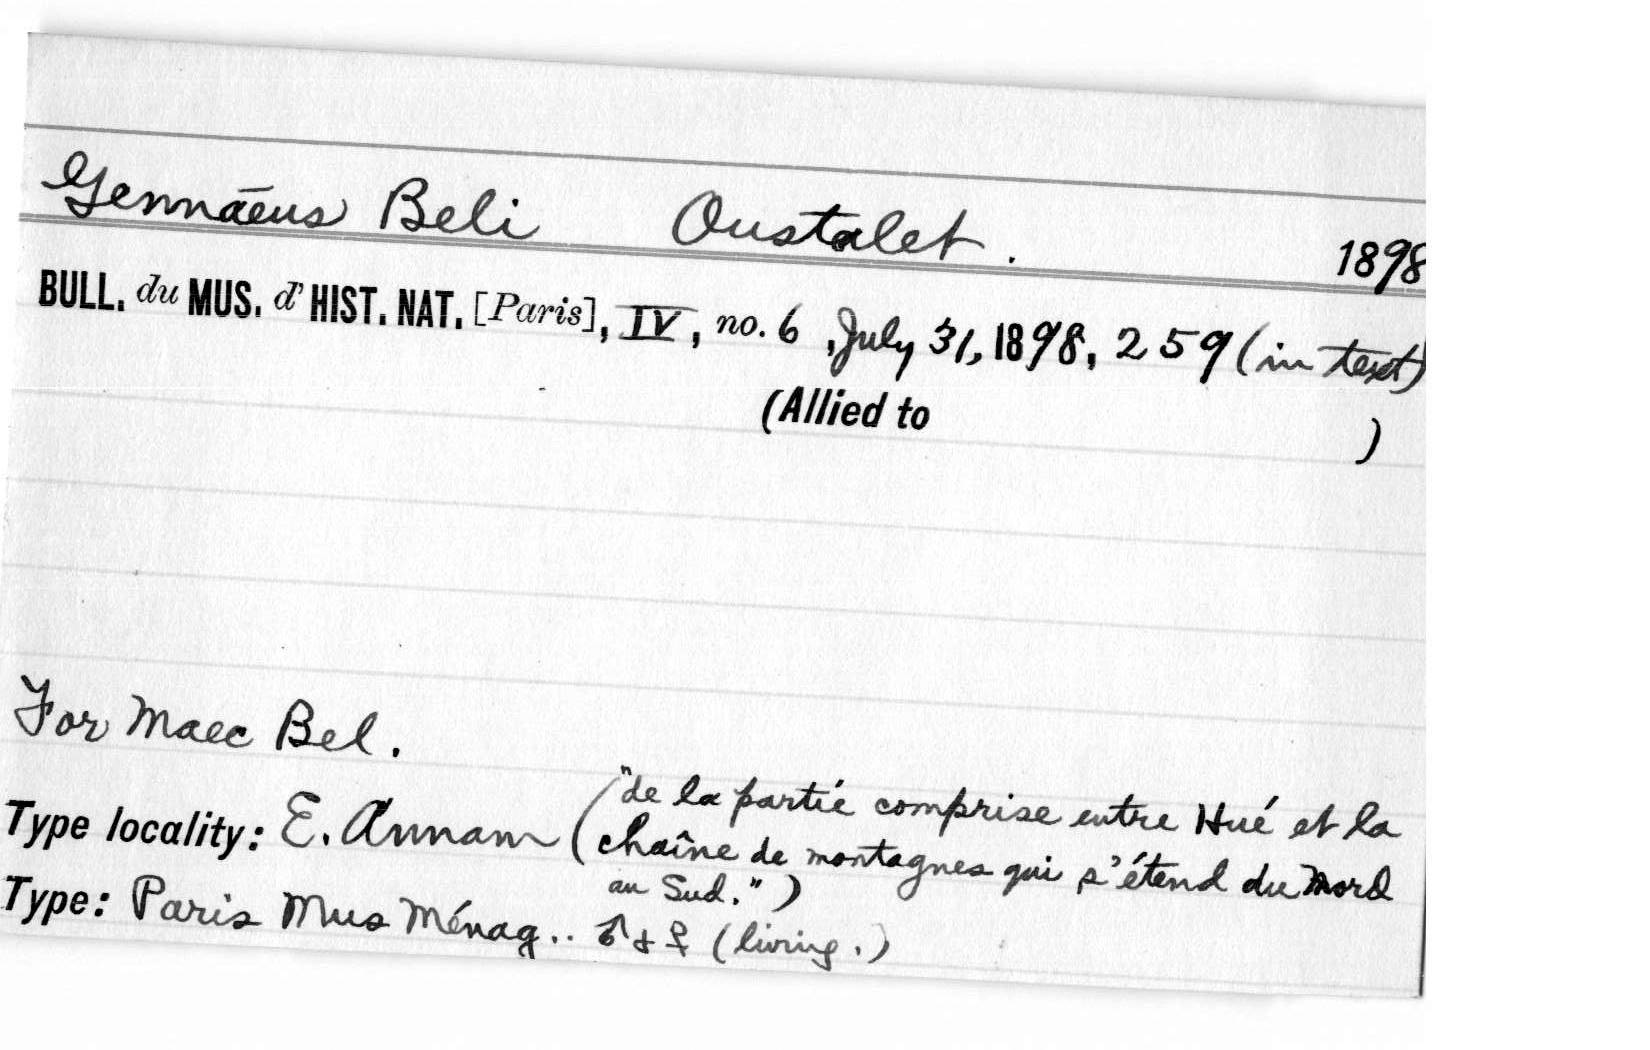 Gennaeus Beli Oustalet. 1898
BULL. du MUS. d' HIST. NAT. [Paris], IV, no. 6, July 31, 1898, 259 (in text)
(Allied to )
For Maec Bel.
Type locality: E. Annam ("de la partie comprise entre Hué et la
chaîne de montagnes qui s'étend du Nord
au Sud.")
Type: Paris Mus Ménag.. ♂ & ♀ (living.)